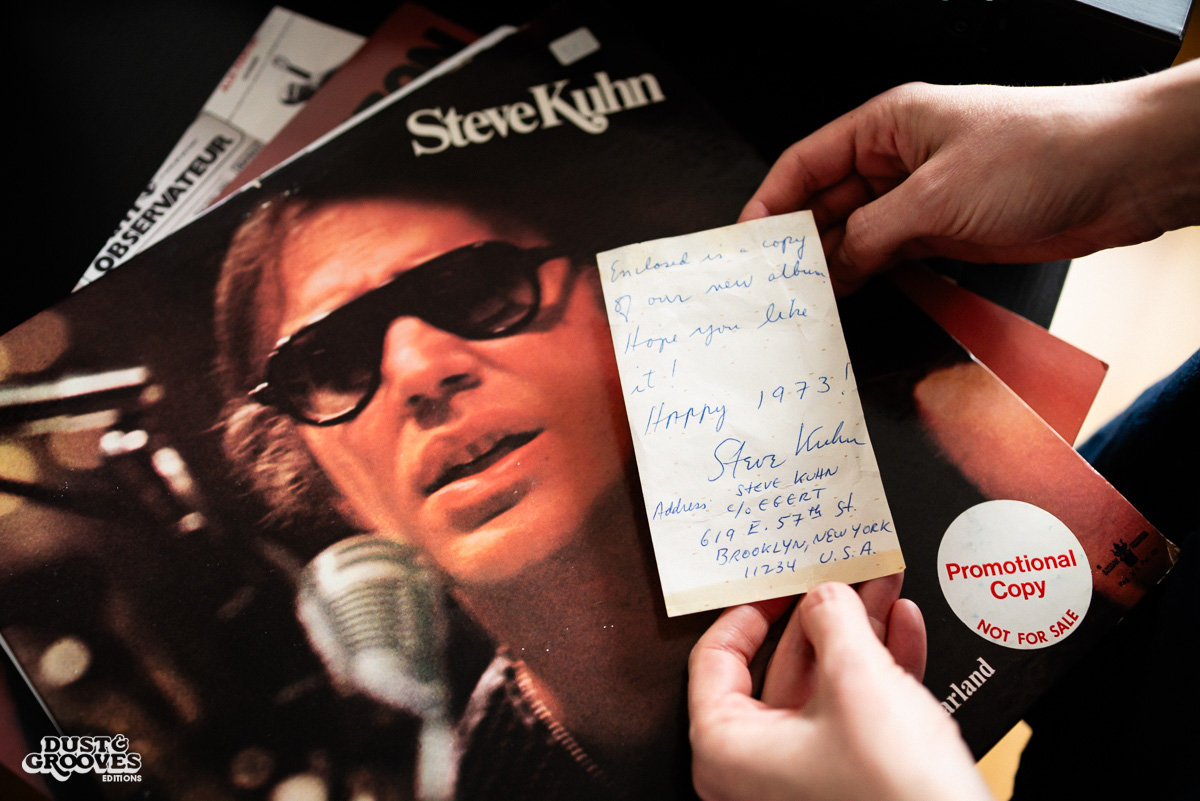 Steve Kuhn
OBSERVATEUR
Enclosed is a copy
of our new album.
Hope you like
it!
Happy 1973!
Steve Kuhn
STEVE KUHN
Address: c/o EGERT
619 E. 57th St.
BROOKLYN, NEW YORK
11234 U.S.A.
Promotional
Copy
NOT FOR SALE
arland
DUST&
GROOVES
EDITIONS